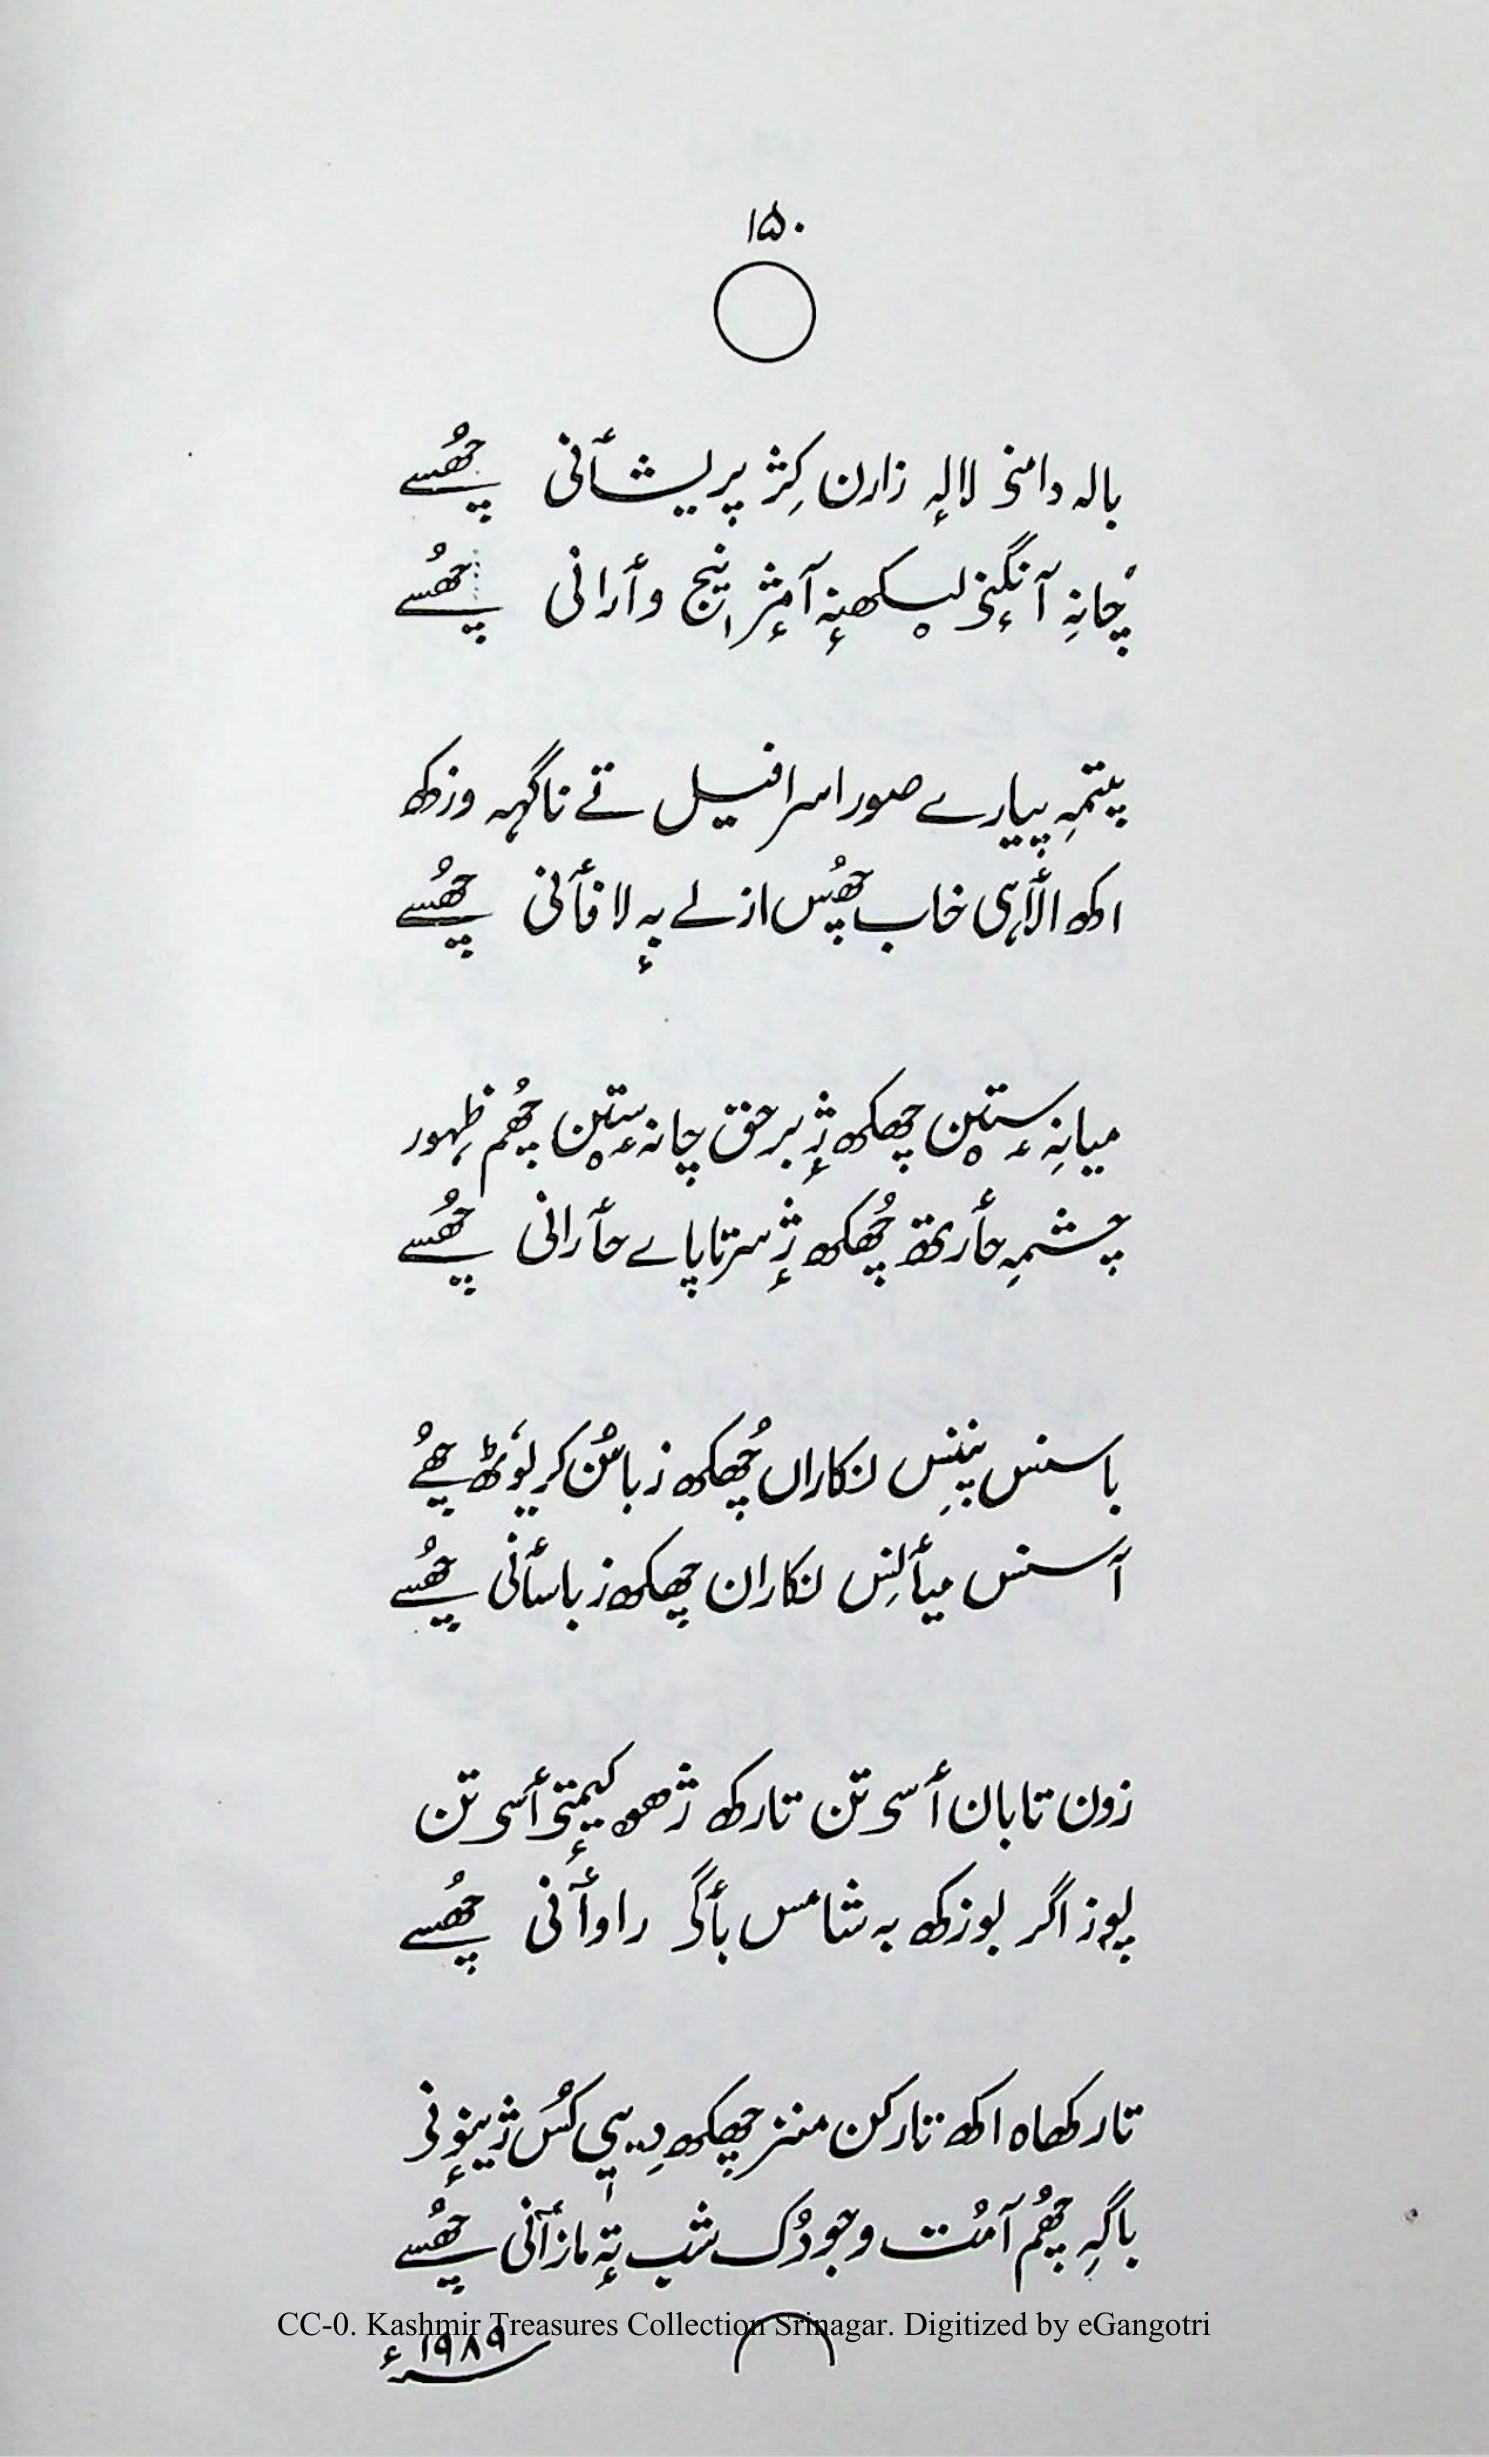 ۱۵۰
بالہ دامنی لالہٕ زارن کِژ پریشٲنی چھُسے
چانِہ آنگنٕی لیکھنہٕ آمٕژ اِنِیج وٲرانی چھُسے
پیتمہِ پیارے صور اسرافیل تے ناگہہ وزکھ
اکھ الٲہی خاب چھُس ازلے پہٕ لافٲنی چھُسے
میانِہ ستۭن چھکھ ژٕ برحق چانہِ ستۭن چھُم ظہور
چشمہِ حٲرتھ چھُکھ ژٕ سرتا پاے حٲرانی چھُسے
باسنس پننِس لنکاراں چھُکھ زباسُن کریوٚٹھ چھُے
آسنس میٲنِس لنکاران چھکھ زباسٲنی چھُسے
زون تابان ٲسی تن تارکھ ژھوکیمٕتی ٲسی تن
پوز اگر بوزکھ بہ شامس بٲگی راوٲنی چھُسے
تارکھاہ اکھ تارکن منز چھکھ دِیی کُس ژینوٕنی
باگہِ چھُم آمُت وجودُک شب تہٕ مازٲنی چھُسے
۱۹۸۹ء
CC-0. Kashmir Treasures Collection Srinagar. Digitized by eGangotri